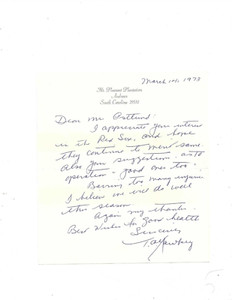 March 14, 1973
Mt. Pleasant Plantation
Andrews
South Carolina 29510
Dear Mr. Ostlund:
I appreciate your interest
in the Red Sox, and hope
they continue to merit same.
Also your suggestion as to
operation - good one too.
Barring too many injuries
I believe we will do well
this season.
Again my thanks.
Best wishes for good health
Sincerely
T A Yawkey